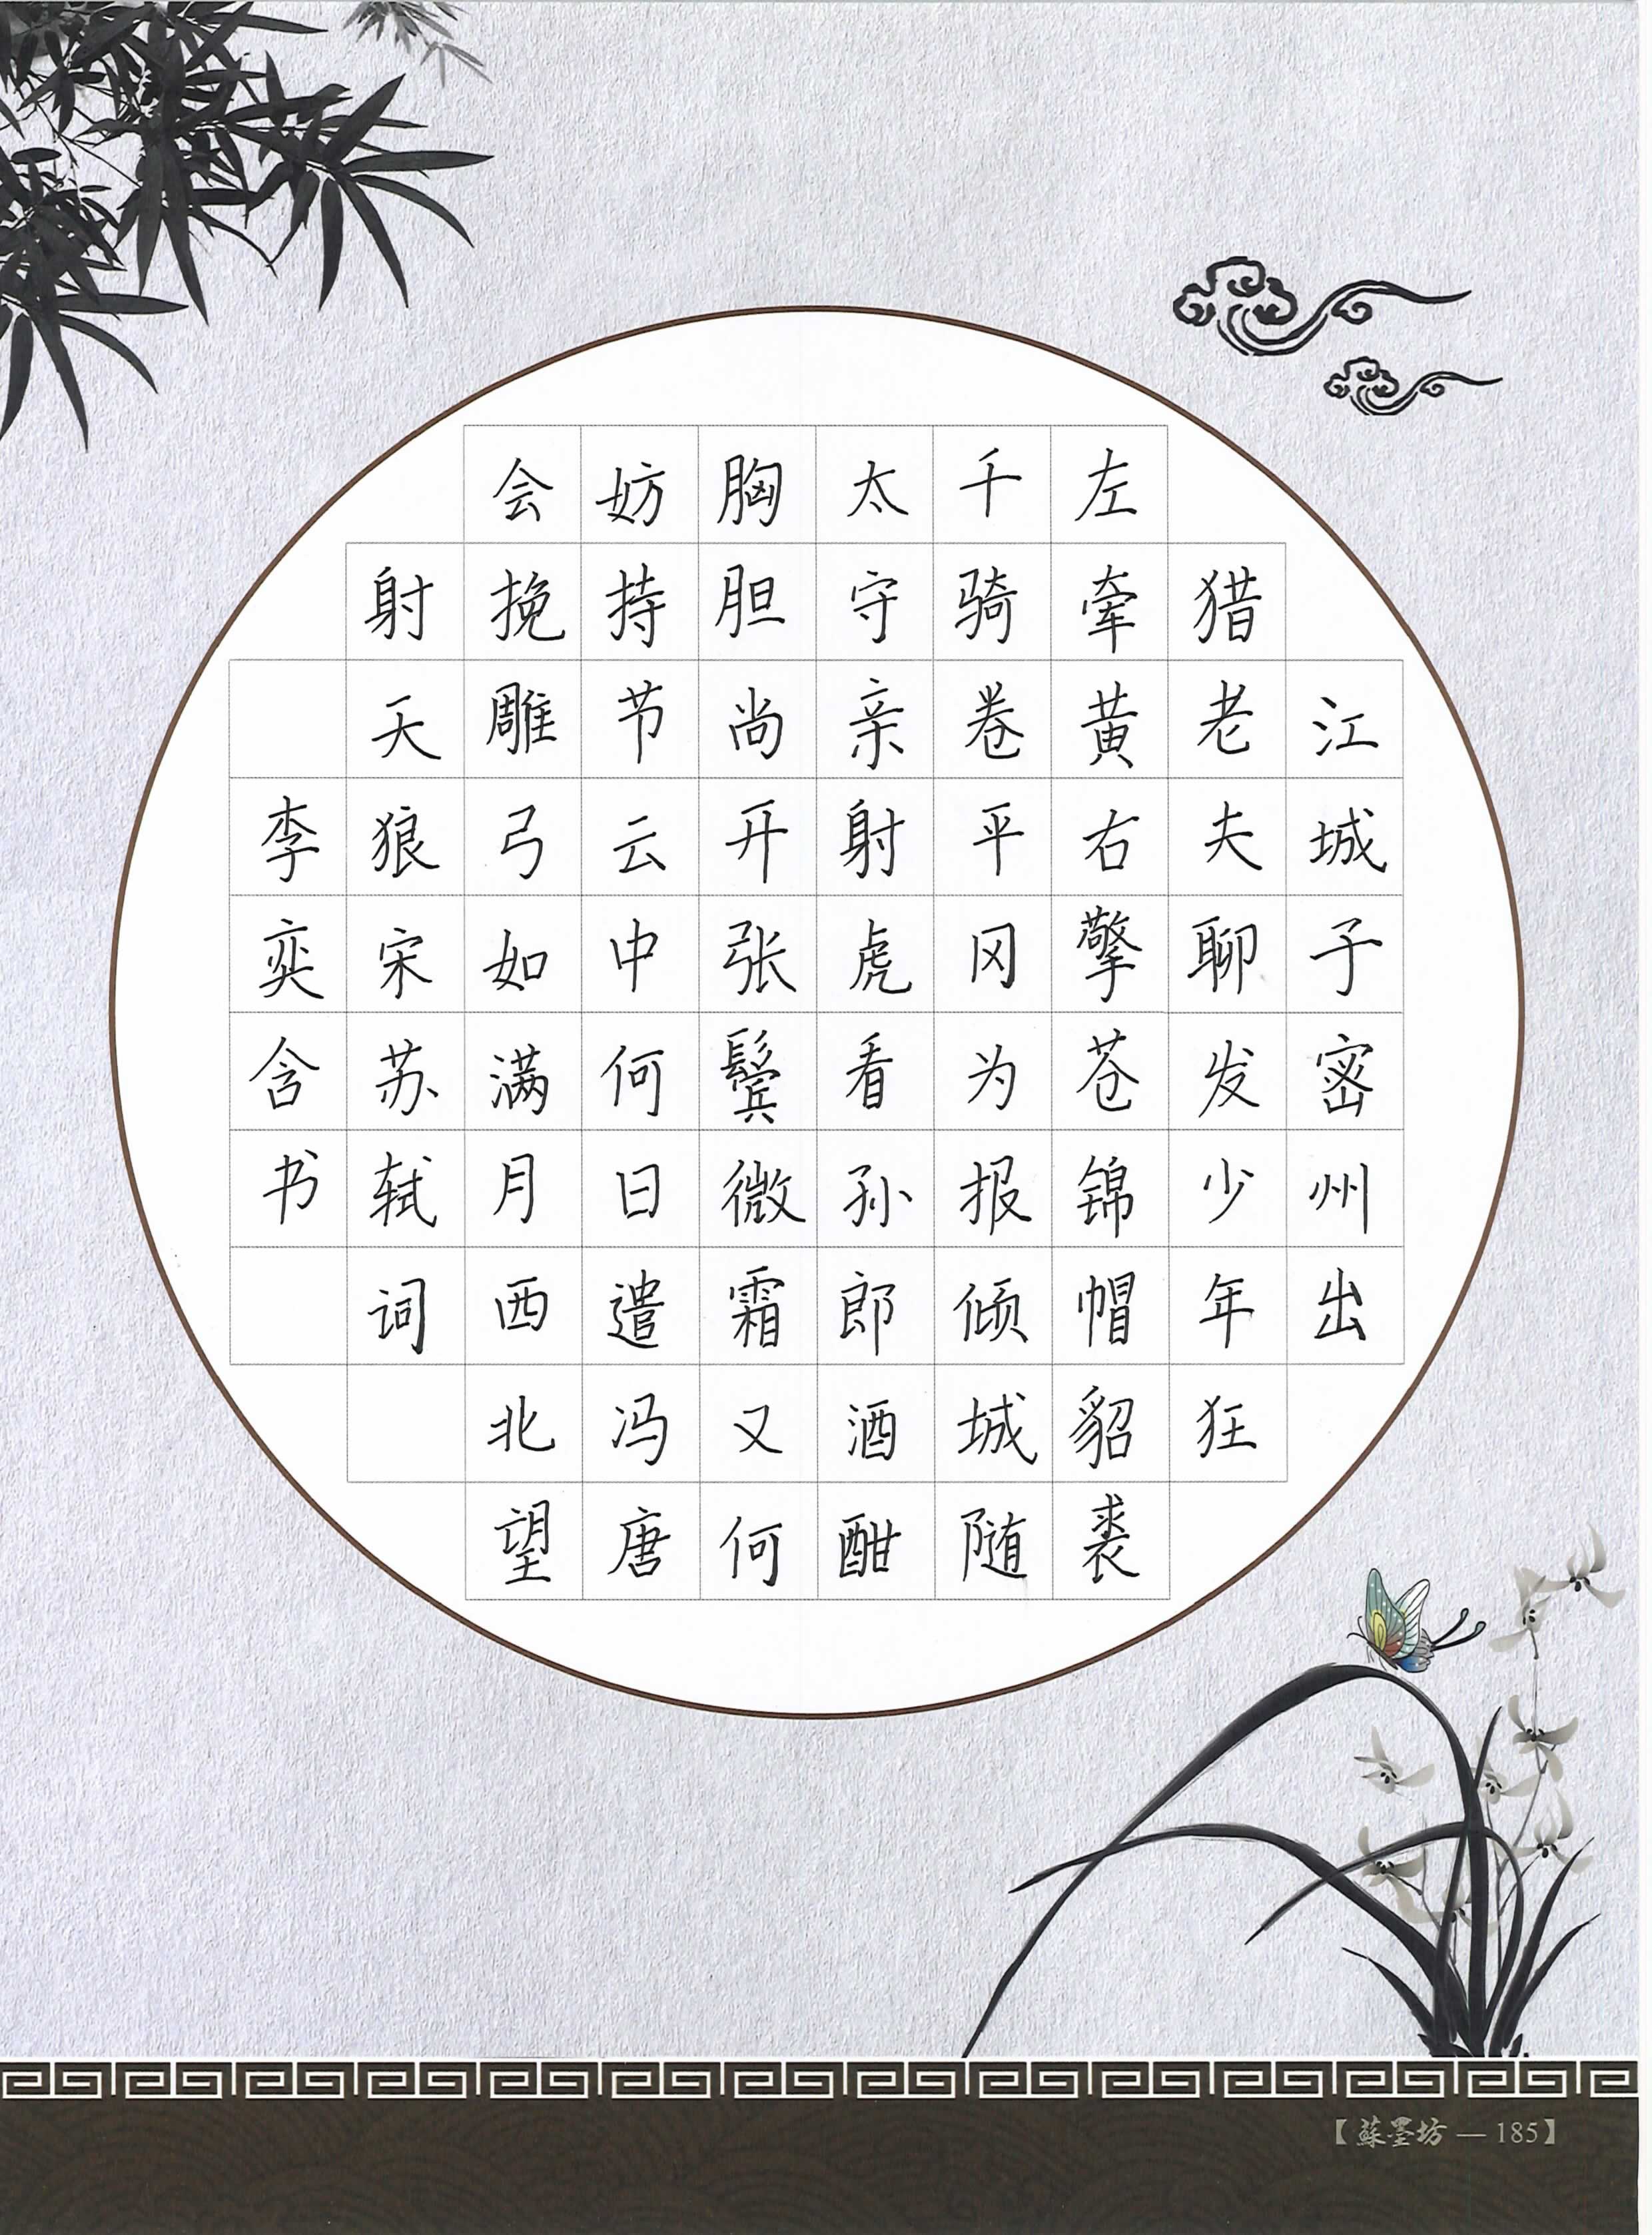 江城子密州出
猎老夫聊发少年狂
左牵黄右擎苍锦帽貂裘
千骑卷平冈为报倾城随
太守亲射虎看孙郎酒酣
胸胆尚开张鬓微霜又何
妨持节云中何日遣冯唐
会挽雕弓如满月西北望
射天狼宋苏轼词
李奕含书
【蘇墨坊—185】